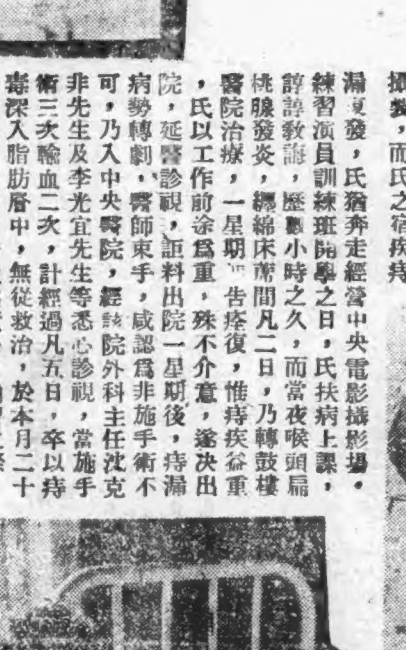 攝製,而氏之宿疾痔
漏復發,氏猶奔走經營中央電影攝影場。
練習演員訓練班開學之日,氏扶病上課,
諄諄敎誨,歷數小時之久,而當夜喉頭扁
桃腺發炎,纏綿床蓆間凡二日,乃轉鼓樓
醫院治療,一星期 告痊復,惟痔疾益重
,氏以工作前途爲重,殊不介意,遂决出
院,延醫診視,詎料出院一星期後,痔漏
病勢轉劇,醫師束手,咸認爲非施手術不
可,乃入中央醫院,經該院外科主任沈克
非先生及李光宜先生等悉心診視,當施手
術三次輸血二次,計經過凡五日,卒以痔
毒深入脂肪層中,無從救治,於本月二十